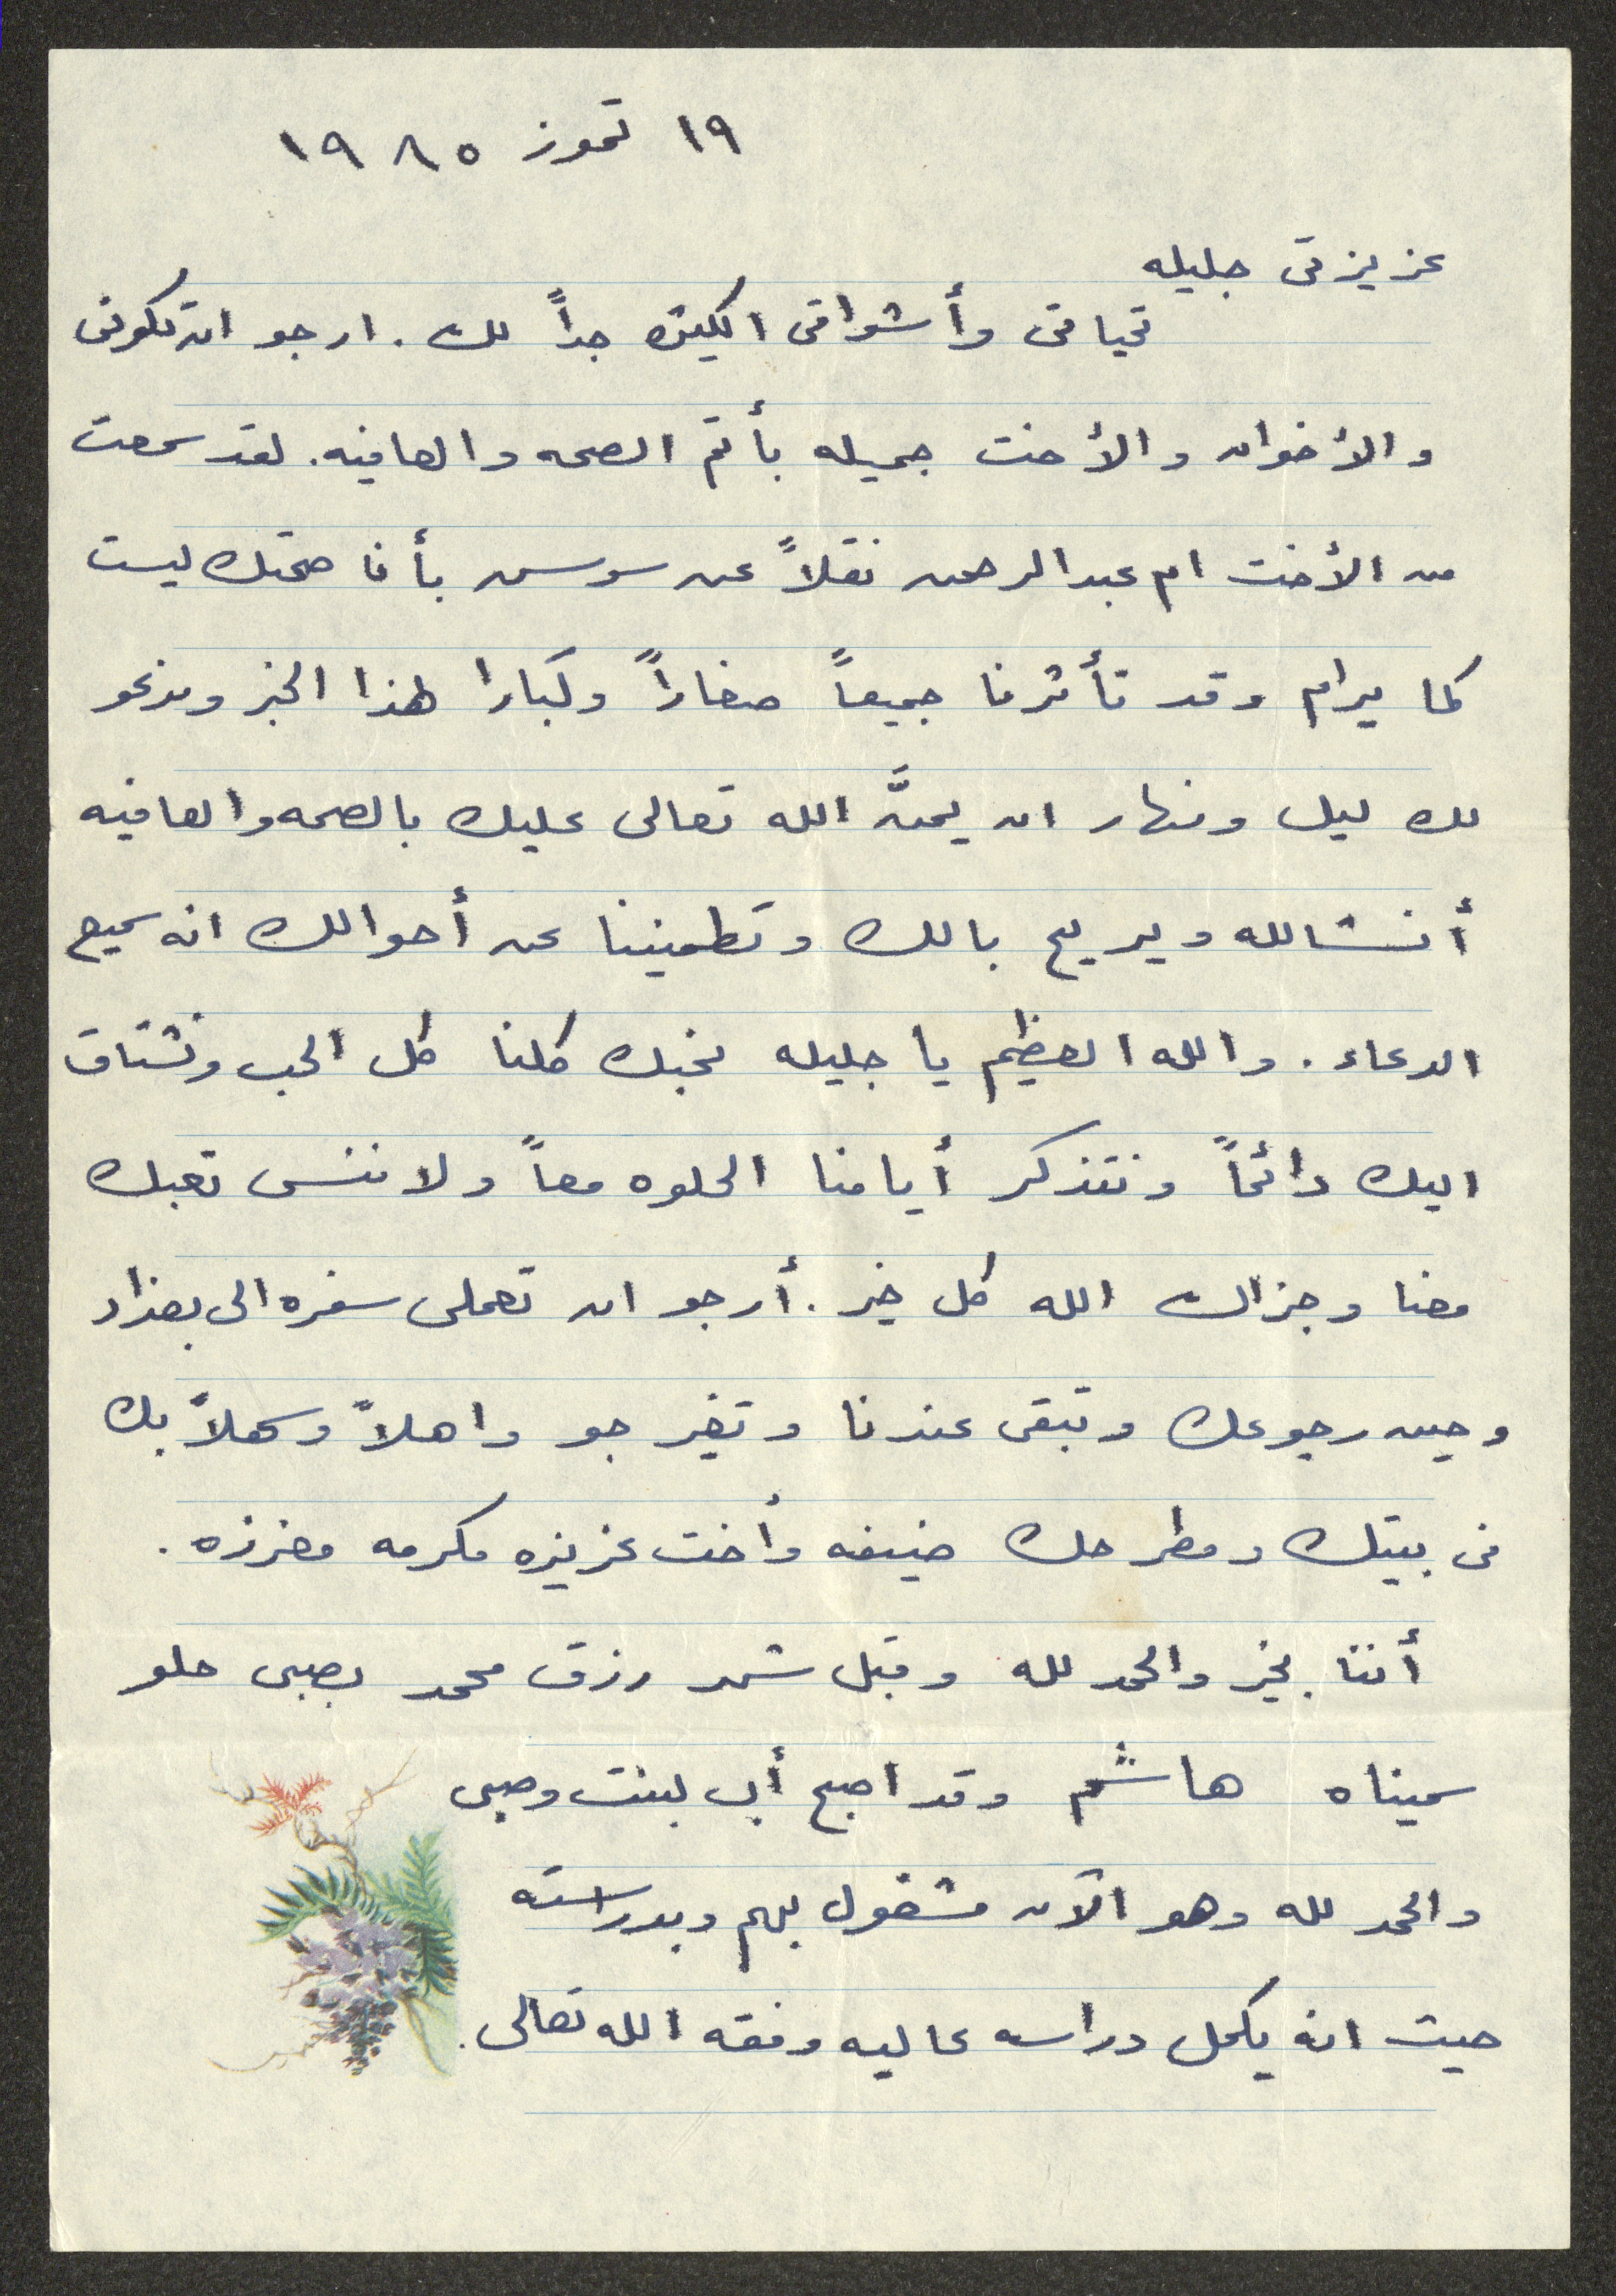 ١٩ تموز ١٩٨٥
عزيزتي جليله
تحياتي وأشواقي الكثيره جداً لك . ارجو ان تكوني
والأخوان والأخت جميله بأتم الصحه والعافيه. لقد سمعت
من الأخت ام عبدالرحمن نقلاً عن سوسن بأن صحتك ليست
كما يرام وقد تأثرنا جميعاً صغاراً وكبارا لهذا الخبر وندعو
لك ليل ونهار ان يمنَّ الله تعالى عليك بالصحه والعافيه
أنشالله ويريح بالك وتطمنينا عن أحوالك انه سميع
الدعاء . والله العظيم يا جليله نحبك كلنا كل الحب ونشتاق
اليك دائماً ونتذكر أيامنا الحلوه معاً ولا ننسى تعبك
معنا وجزاك الله كل خير . أرجو ان تعملي سفره الى بغداد
وحين رجوعك وتبقي عندنا وتغير جو واهلاً وسهلاً بك
في بيتك ومطرحك ضيفه وأخت عزيزه مكرمه معززه .
أننا بخير والحمد لله وقبل شهر رزق محمد بصبي حلو
سميناه هاشم وقد اصبح أب لبنت وصبي
والحمد لله وهو الآن مشغول بهم وبدراسته
حيث انه يكمل دراسه عاليه وفقه الله تعالى .